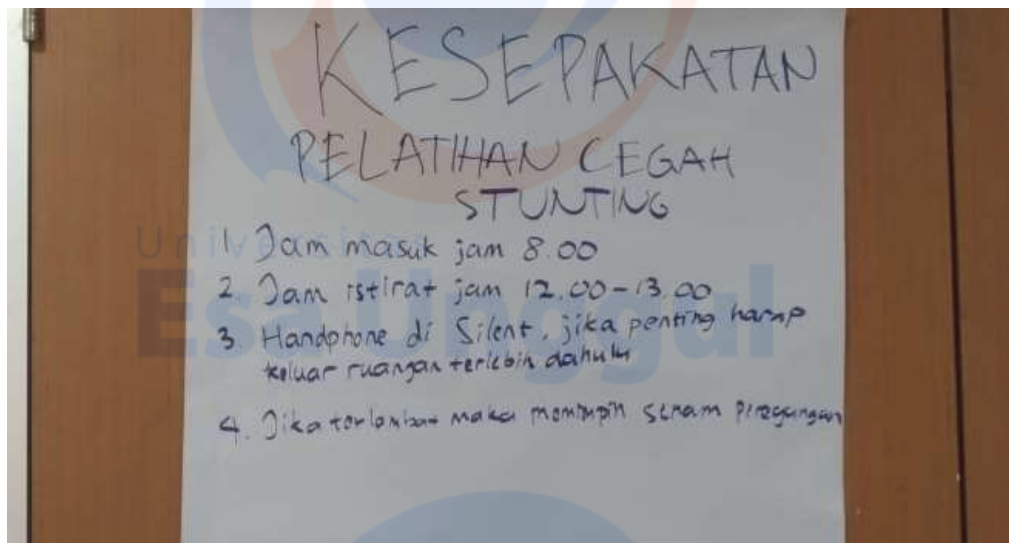 KESEPAKATAN
PELATIHAN CEGAH
STUNTING
1. Jam masuk jam 8.00
2. Jam istirat jam 12.00-13.00
3. Handphone di Silent, jika penting harap
keluar ruangan terlebih dahulu
4. Jika terlambat maka memimpin senam peregangan
Universitas
Esa Unggul